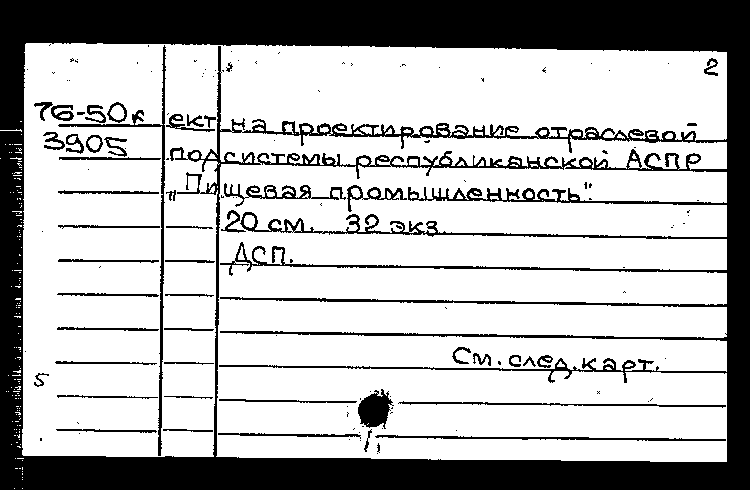 2
76-50к ект на проектирование отраслевой
3905 подсистемы республиканской АСПР
„Пищевая промышленность".
20 см. 32 экз.
ДСП.
См. след. карт.
5